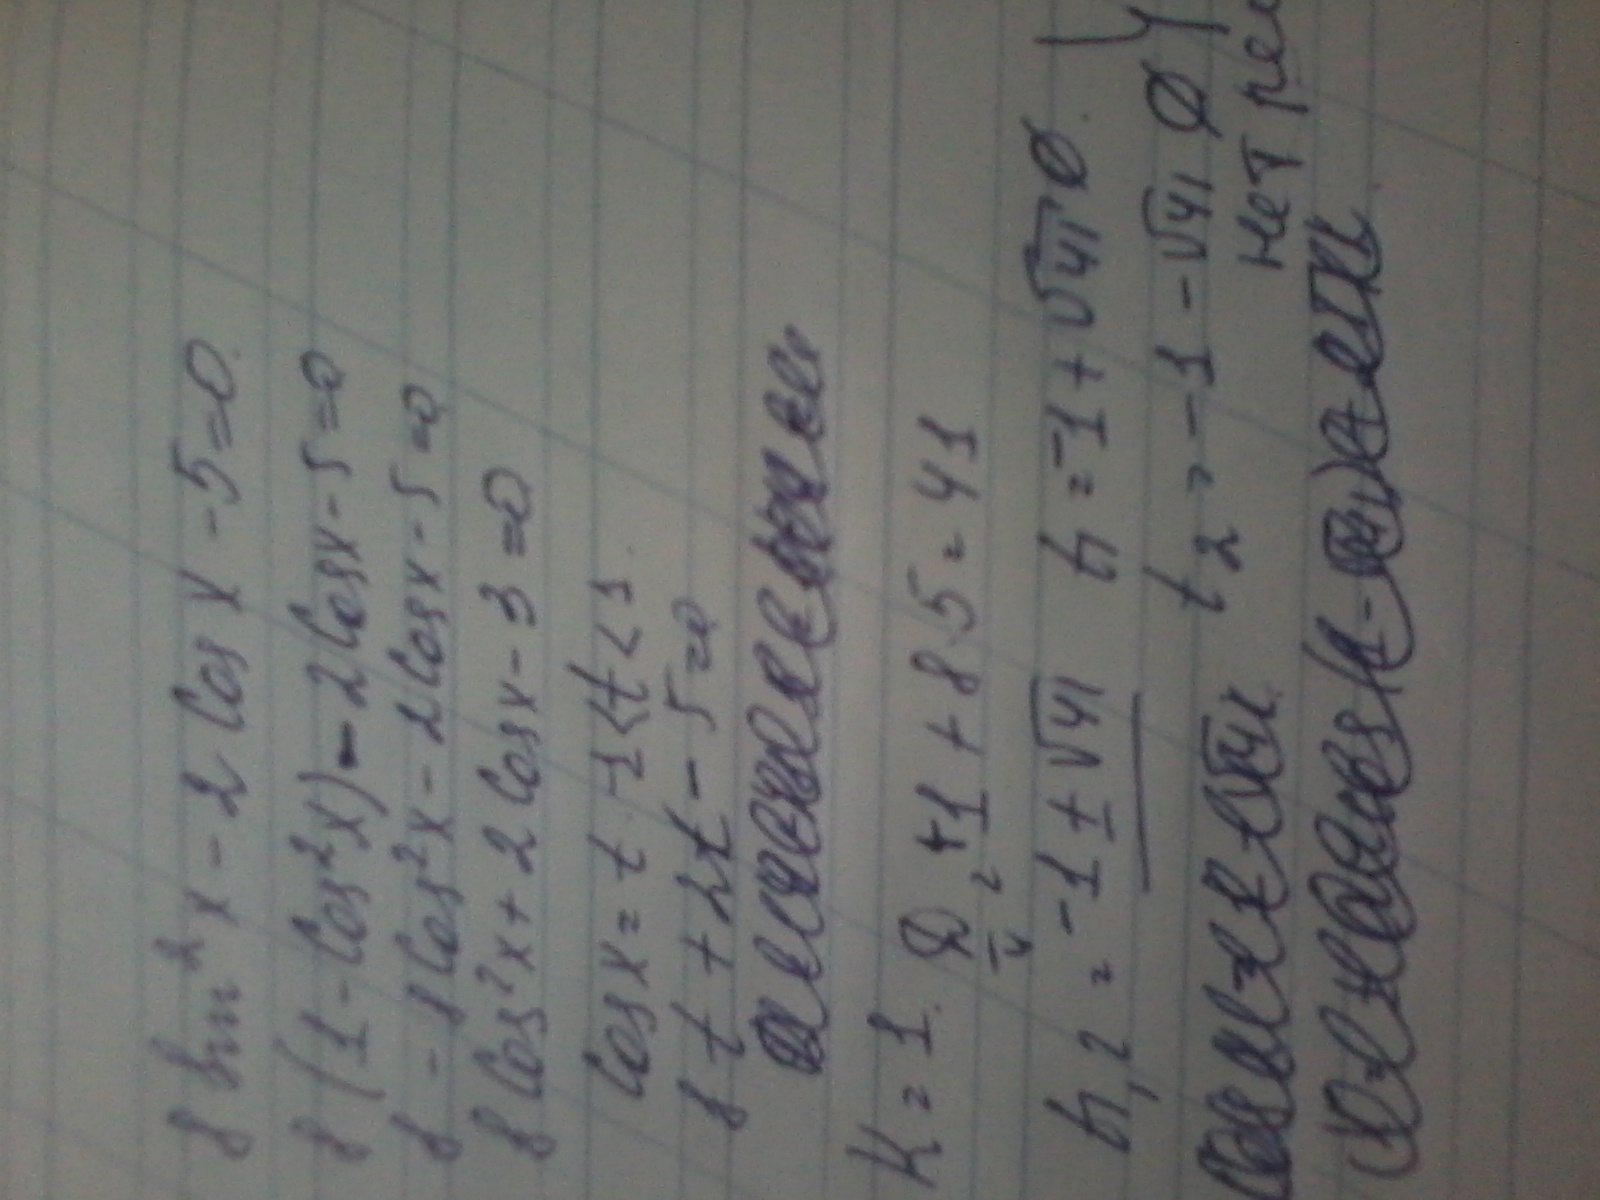 8 sin²x - 2 cos x - 5 = 0.
8 (1 - cos²x) - 2 cos x - 5 = 0
8 - 8 cos²x - 2 cos x - 5 = 0
8 cos²x + 2 cos x - 3 = 0
cos x = t -1 < t < 1.
8 t + 2t - 5 = 0
K = 1. D/4 = +1 + 8·5 = 41
t1,2 = -1 ± √41 t1 = -1 + √41 Ø.
t2 = -1 - √41 Ø
нет реш